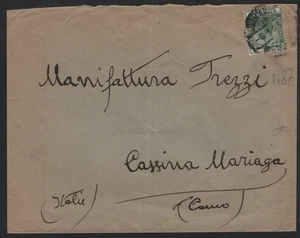 Manifattura Trezzi
Cassina Mariaga
(Italie)
(Como)